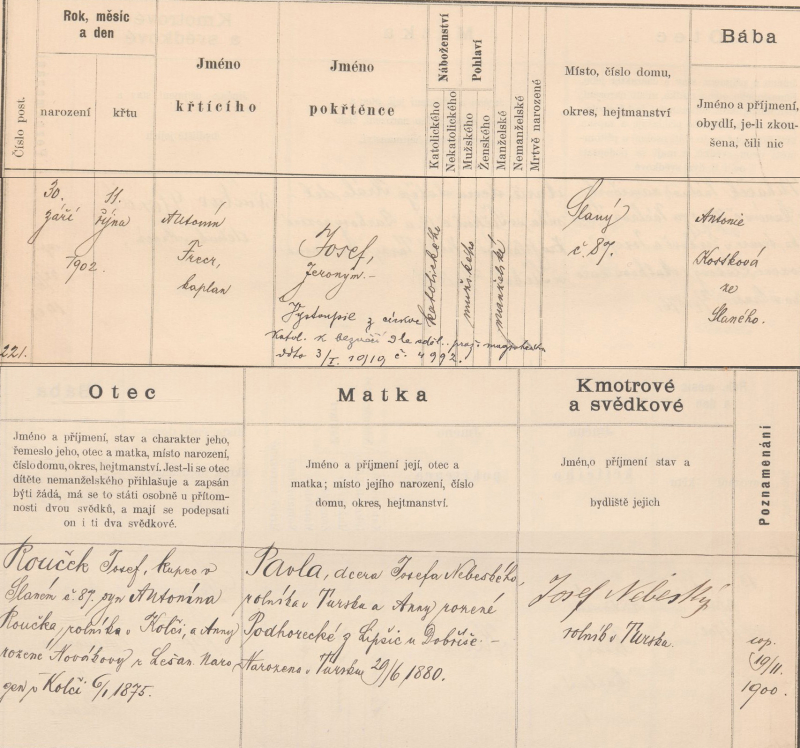 Číslo post.
Rok, měsíc
a den
narození
křtu
Jméno
křtícího
Jméno
pokřtěnce
Náboženství
Katolického
Nekatolického
Pohlaví
Mužského
Ženského
Manželské
Nemanželské
Mrtvě narozené
Místo, číslo domu,
okres, hejtmanství
Bába
Jméno a příjmení,
obydlí, je-li zkou-
šena, čili nic
221.
30.
září
11.
října
1902.
Antonín
kaplan
Josef,
Jeronym.-
Vystoupil z církve
katol. k bezvěří dle
ddto 3/I. 1919 č. 4992.
katolického
mužského
manželské
Slaný
č. 87.
Antonie
Kosšková
ze
Slaného.
Otec
Jméno a příjmení, stav a charakter jeho,
řemeslo jeho, otec a matka, místo narození,
číslo domu, okres, hejtmanství. Jest-li se otec
dítěte nemanželského přihlašuje a zapsán
býti žádá, má se to státi osobně u přítom-
nosti dvou svědků, a mají se podepsati
on i ti dva svědkové.
Matka
Jméno a příjmení její, otec a
matka; místo jejího narození, číslo
domu, okres, hejtmanství.
Kmotrové
a svědkové
Jmén,o příjmení stav a
bydliště jejich
Poznamenání
Rouček Josef, kupec v
Slaném č. 87. syn Antonína
Roučka, rolníka v Kolči, a Anny
rozené Novákovy z Lešan. Naro-
zen v Kolči 6/1 1875.
Pavla, dcera Josefa Nebeského,
rolníka v Turska a Anny rozené
Podhorecké z Lipšic u Dobříše.-
Narozena v Tursku 29/6 1880.
Josef Nebeský
rolník v Turska.
cop.
19/11.
1900.